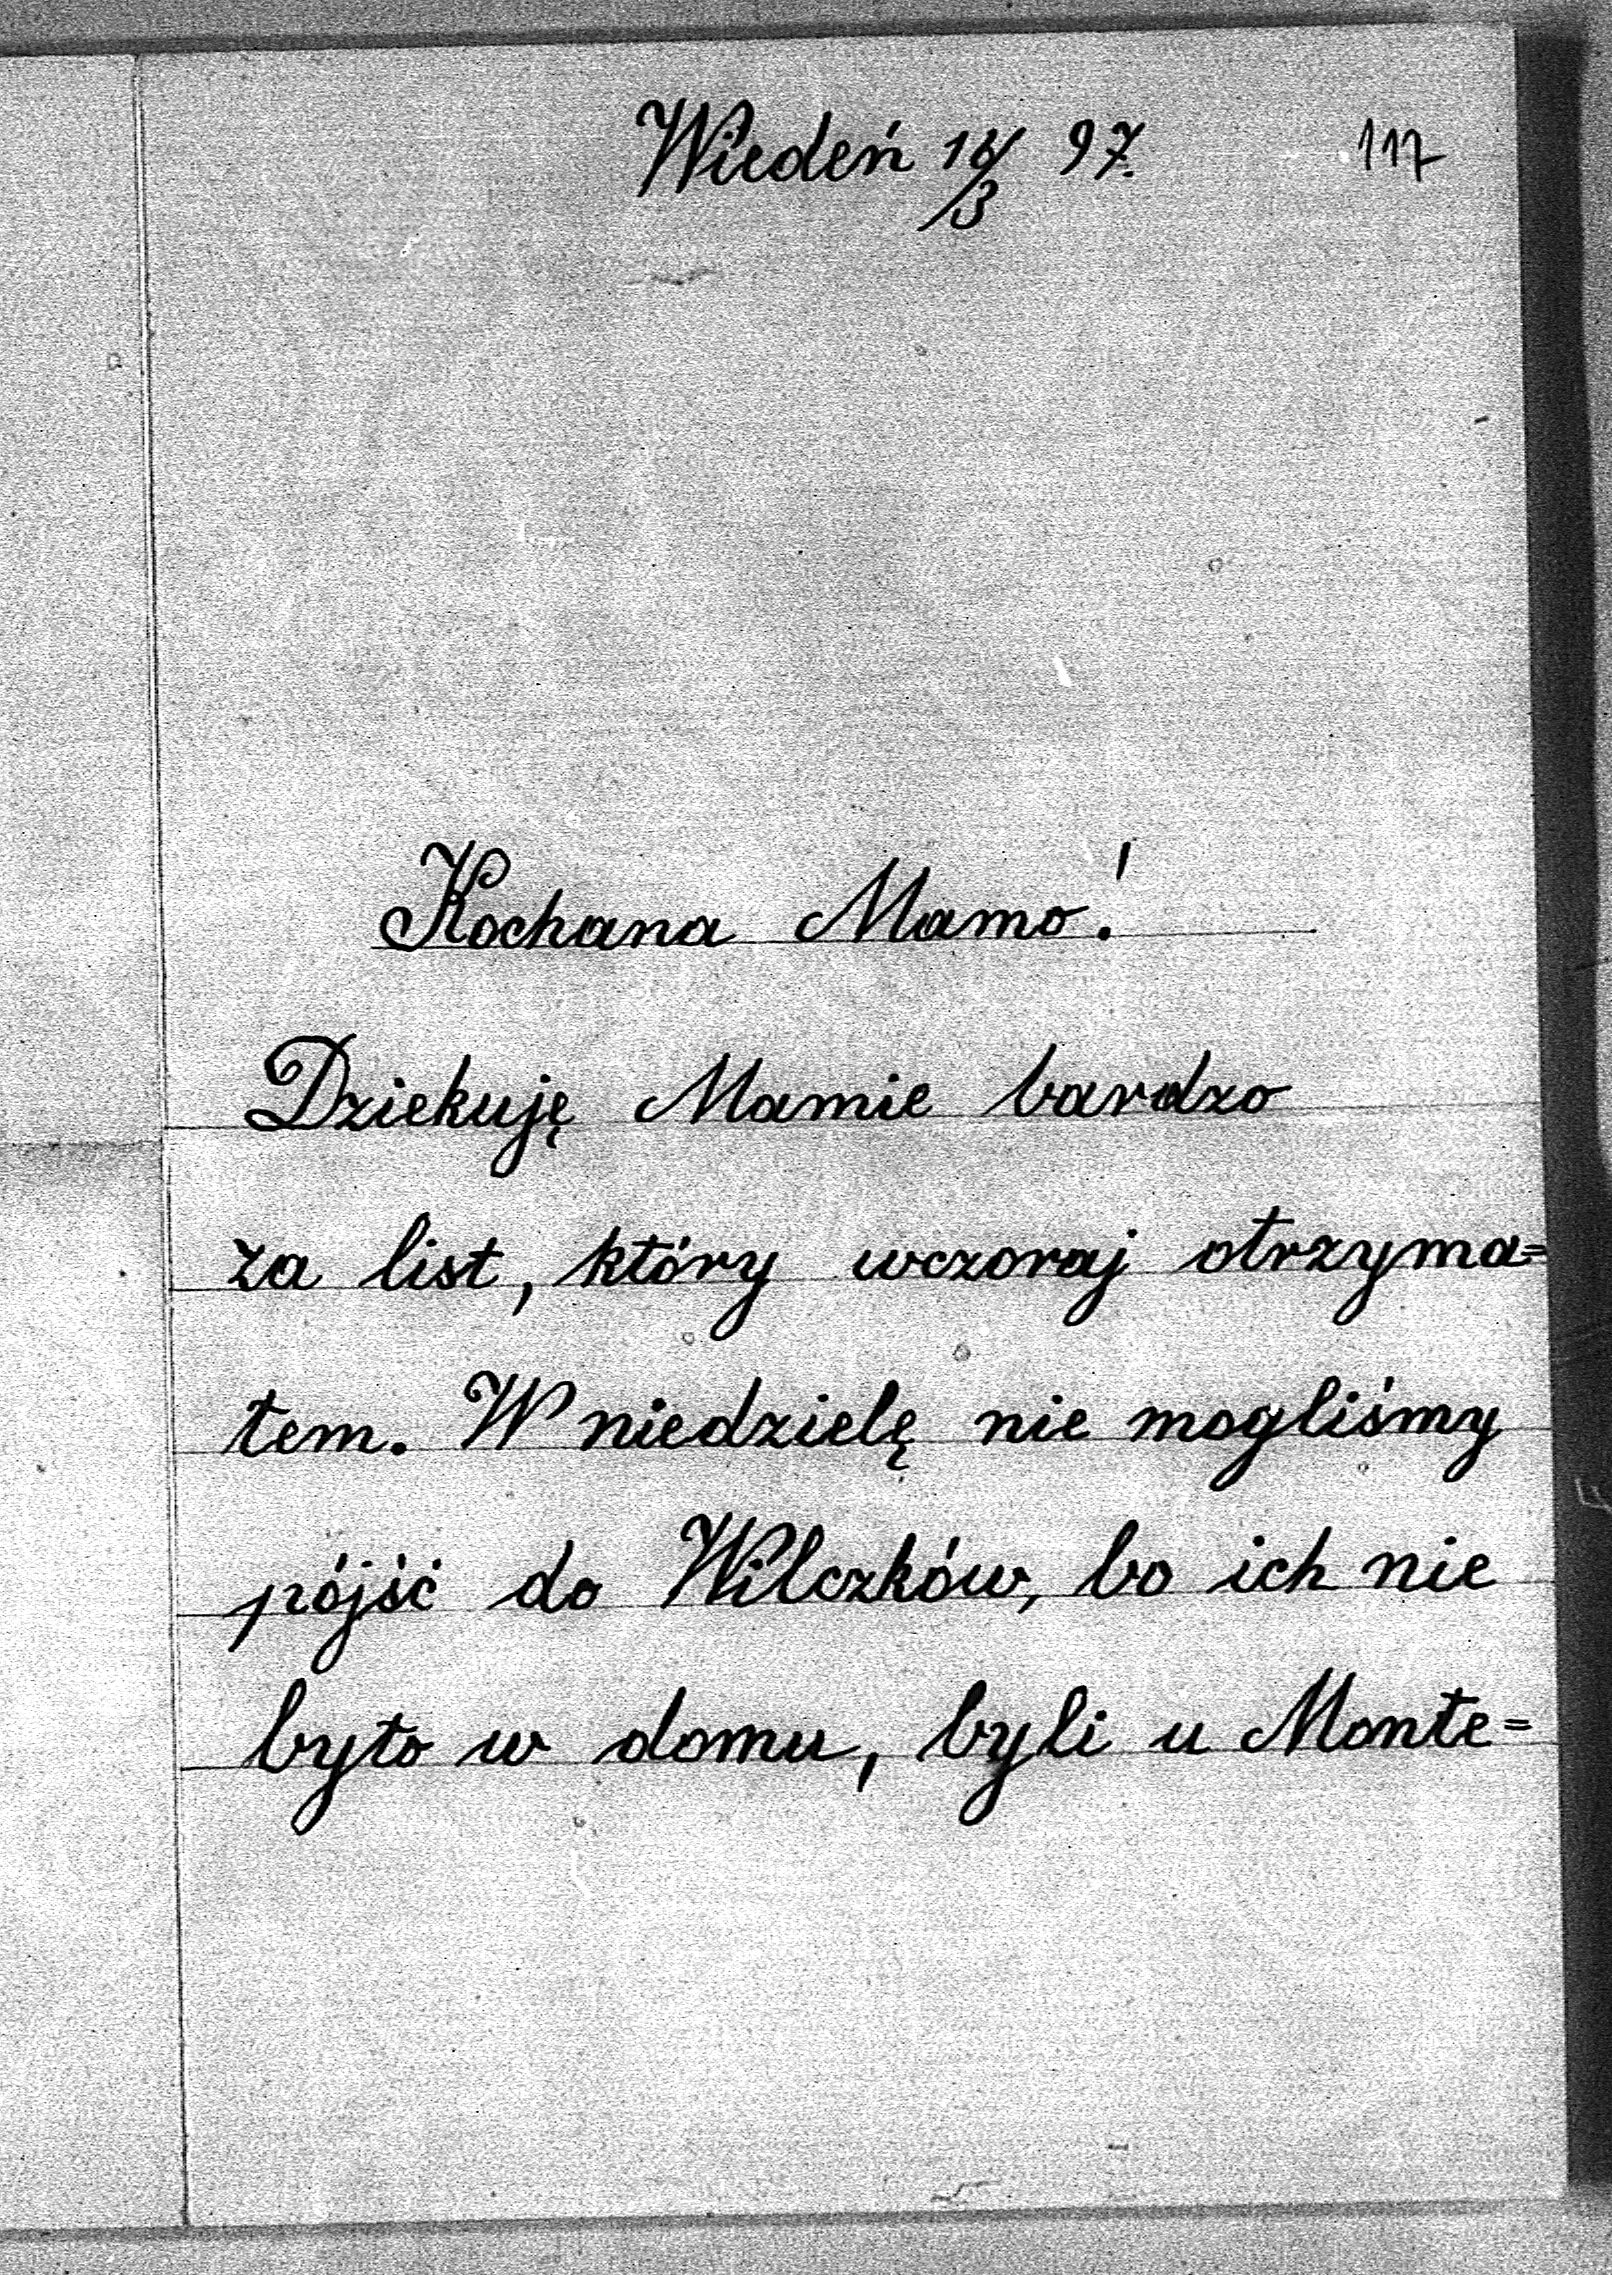 Wiedeń 16/3 97. 117
Kochana Mamo!
Dziekuję Mamie bardzo
za list, który wczoraj otrzyma=
łem. W niedzielę nie mogliśmy
pójść do Wilczków, bo ich nie
było w domu, byli u Monte=